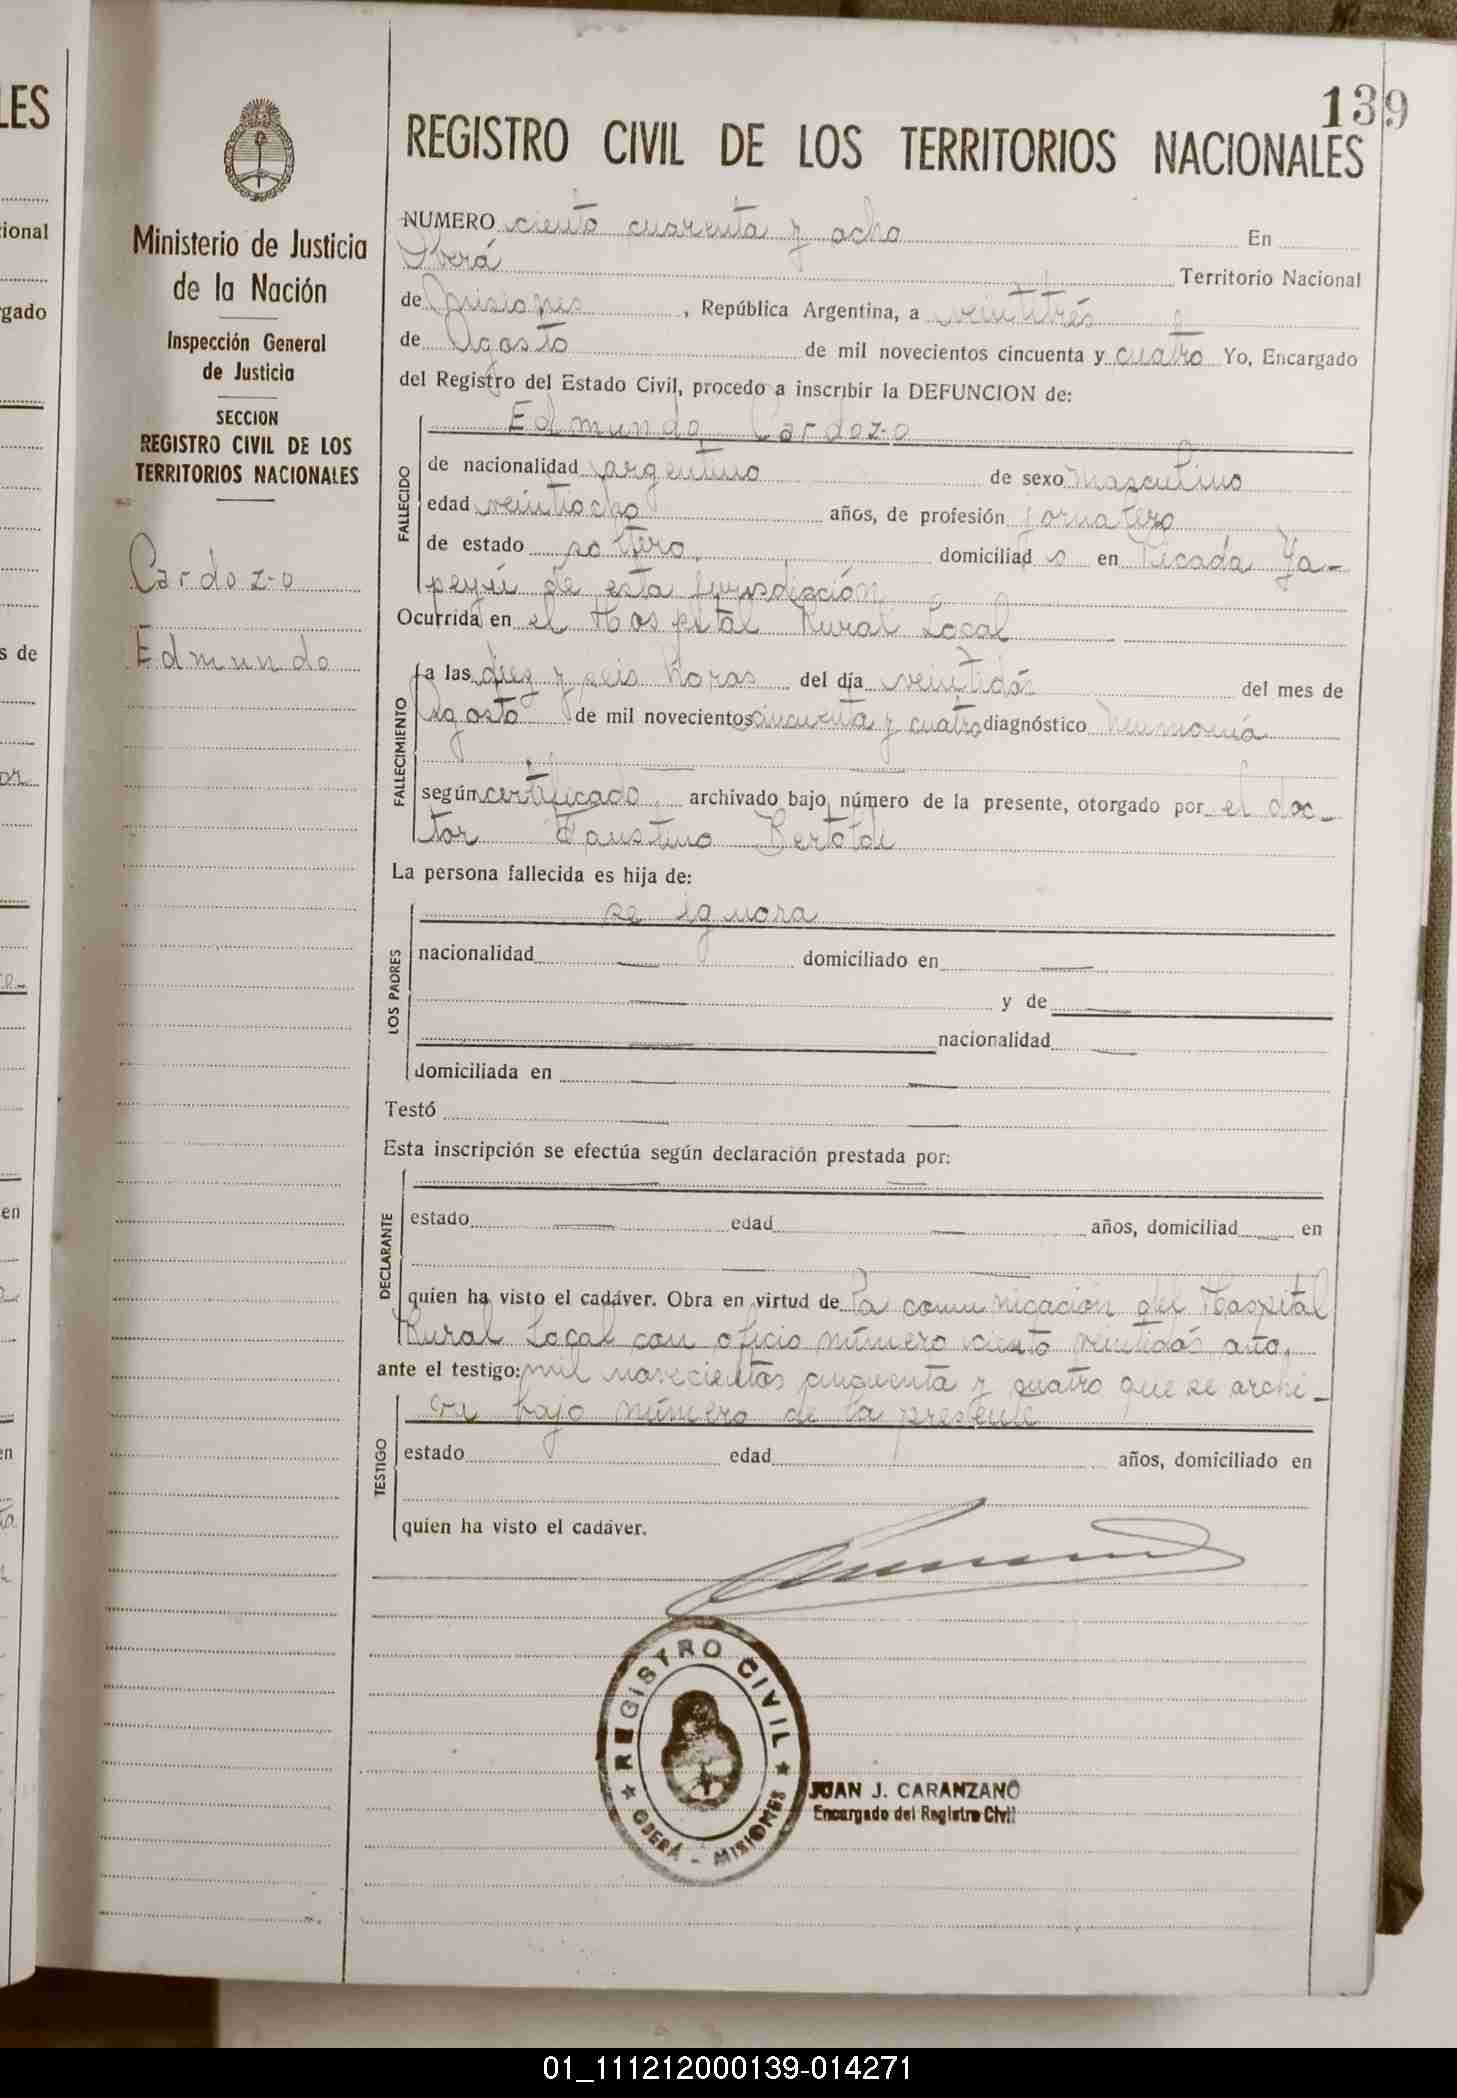 139
REGISTRO CIVIL DE LOS TERRITORIOS NACIONALES
Ministerio de Justicia
de la Nación
Inspección General
de Justicia
SECCION
REGISTRO CIVIL DE LOS
TERRITORIOS NACIONALES
Cardozo
Edmundo
NUMERO ciento cuarenta y ocho En
Oberá Territorio Nacional
de Misiones, República Argentina, a veintitrés
de Agosto de mil novecientos cincuenta y cuatro Yo, Encargado
del Registro del Estado Civil, procedo a inscribir la DEFUNCION de:
Edmundo Cardozo
FALLECIDO
de nacionalidad argentino de sexo masculino
edad veintiocho años, de profesión jornalero
de estado soltero domiciliado en Picada Ya-
peyú de esta jurisdicción
Ocurrida en el Hospital Rural Local
FALLECIMIENTO
a las diez y seis horas del día veintidós del mes de
Agosto de mil novecientos cincuenta y cuatro diagnóstico neumonía
según certificado archivado bajo número de la presente, otorgado por el doc-
tor Faustino Bertoldi
La persona fallecida es hija de:
LOS PADRES
se ignora
nacionalidad domiciliado en
y de
nacionalidad
domiciliada en
Testó
Esta inscripción se efectúa según declaración prestada por:
DECLARANTE
estado edad años, domiciliad en
quien ha visto el cadáver. Obra en virtud de la comunicación del Hospital
Rural Local con oficio número ciento veintidós año,
ante el testigo: mil novecientos cincuenta y cuatro que se archi-
va bajo número de la presente
TESTIGO
estado edad años, domiciliado en
quien ha visto el cadáver.
REGISTRO CIVIL
OBERÁ - MISIONES
JUAN J. CARANZANO
Encargado del Registro Civil
LES
cional
gado
s de
or
en
en
01_111212000139-014271